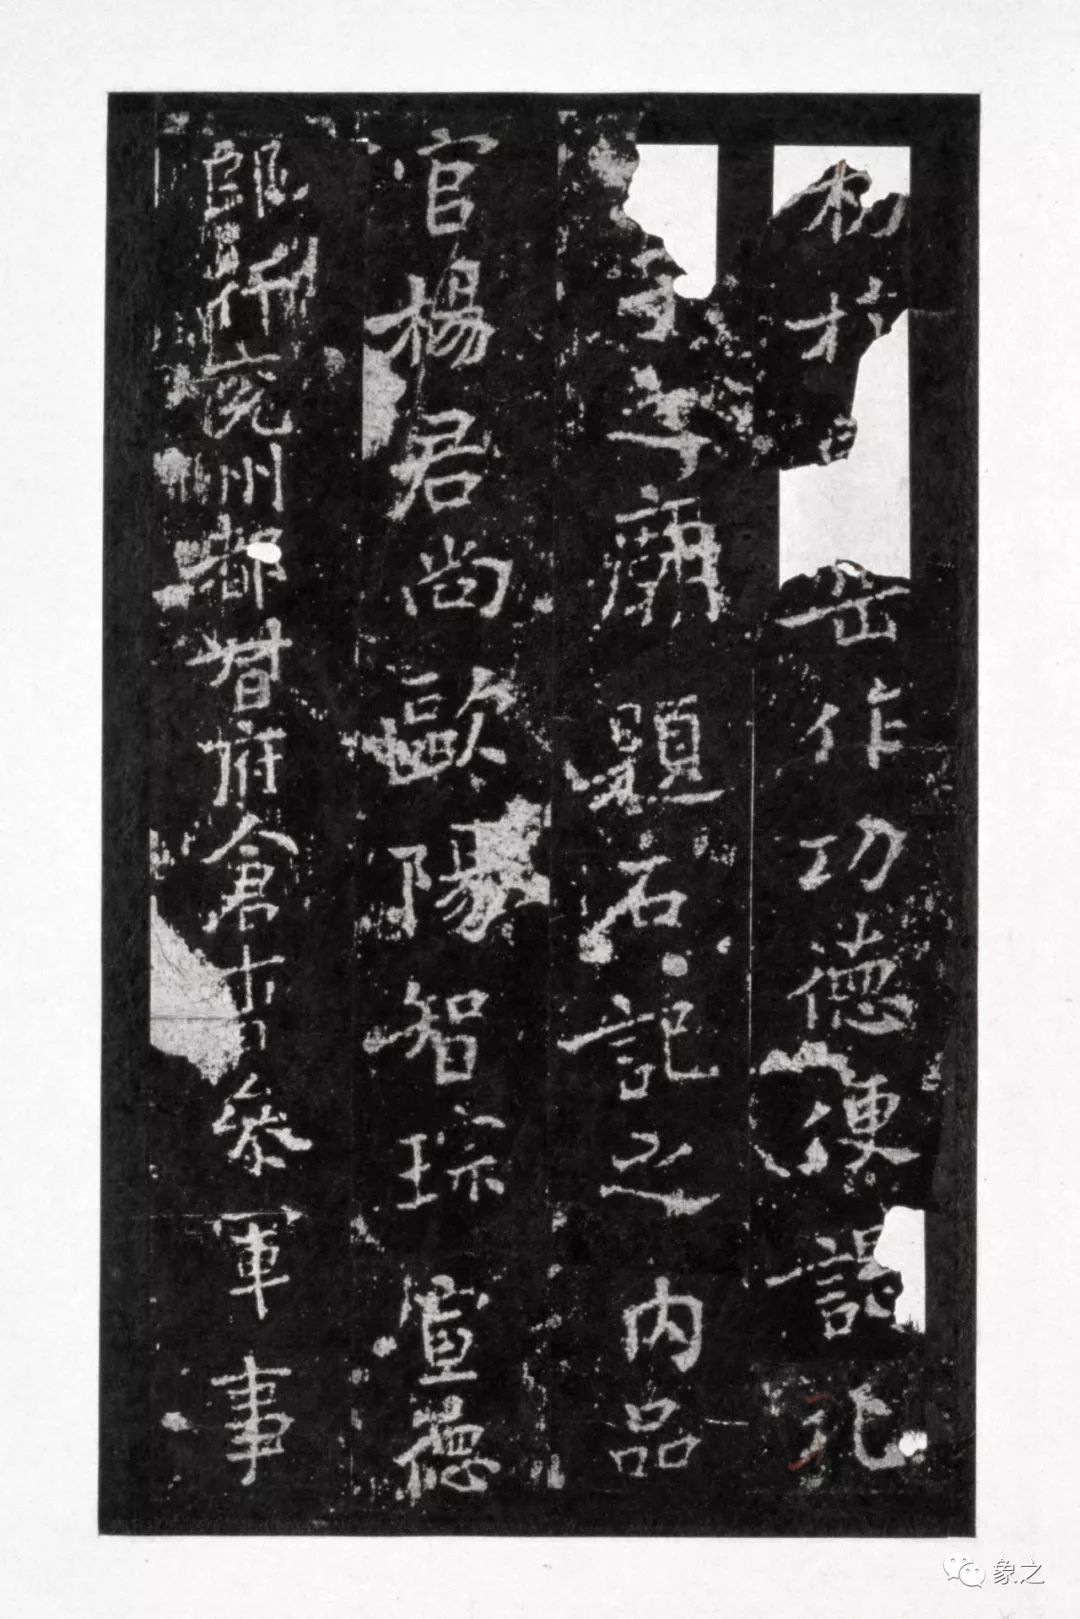 岳作功德便謁孔
子之廟題石記之內品
官楊君尚歐陽智琮宣德
郎行兗州都督府倉曹參軍事
象之